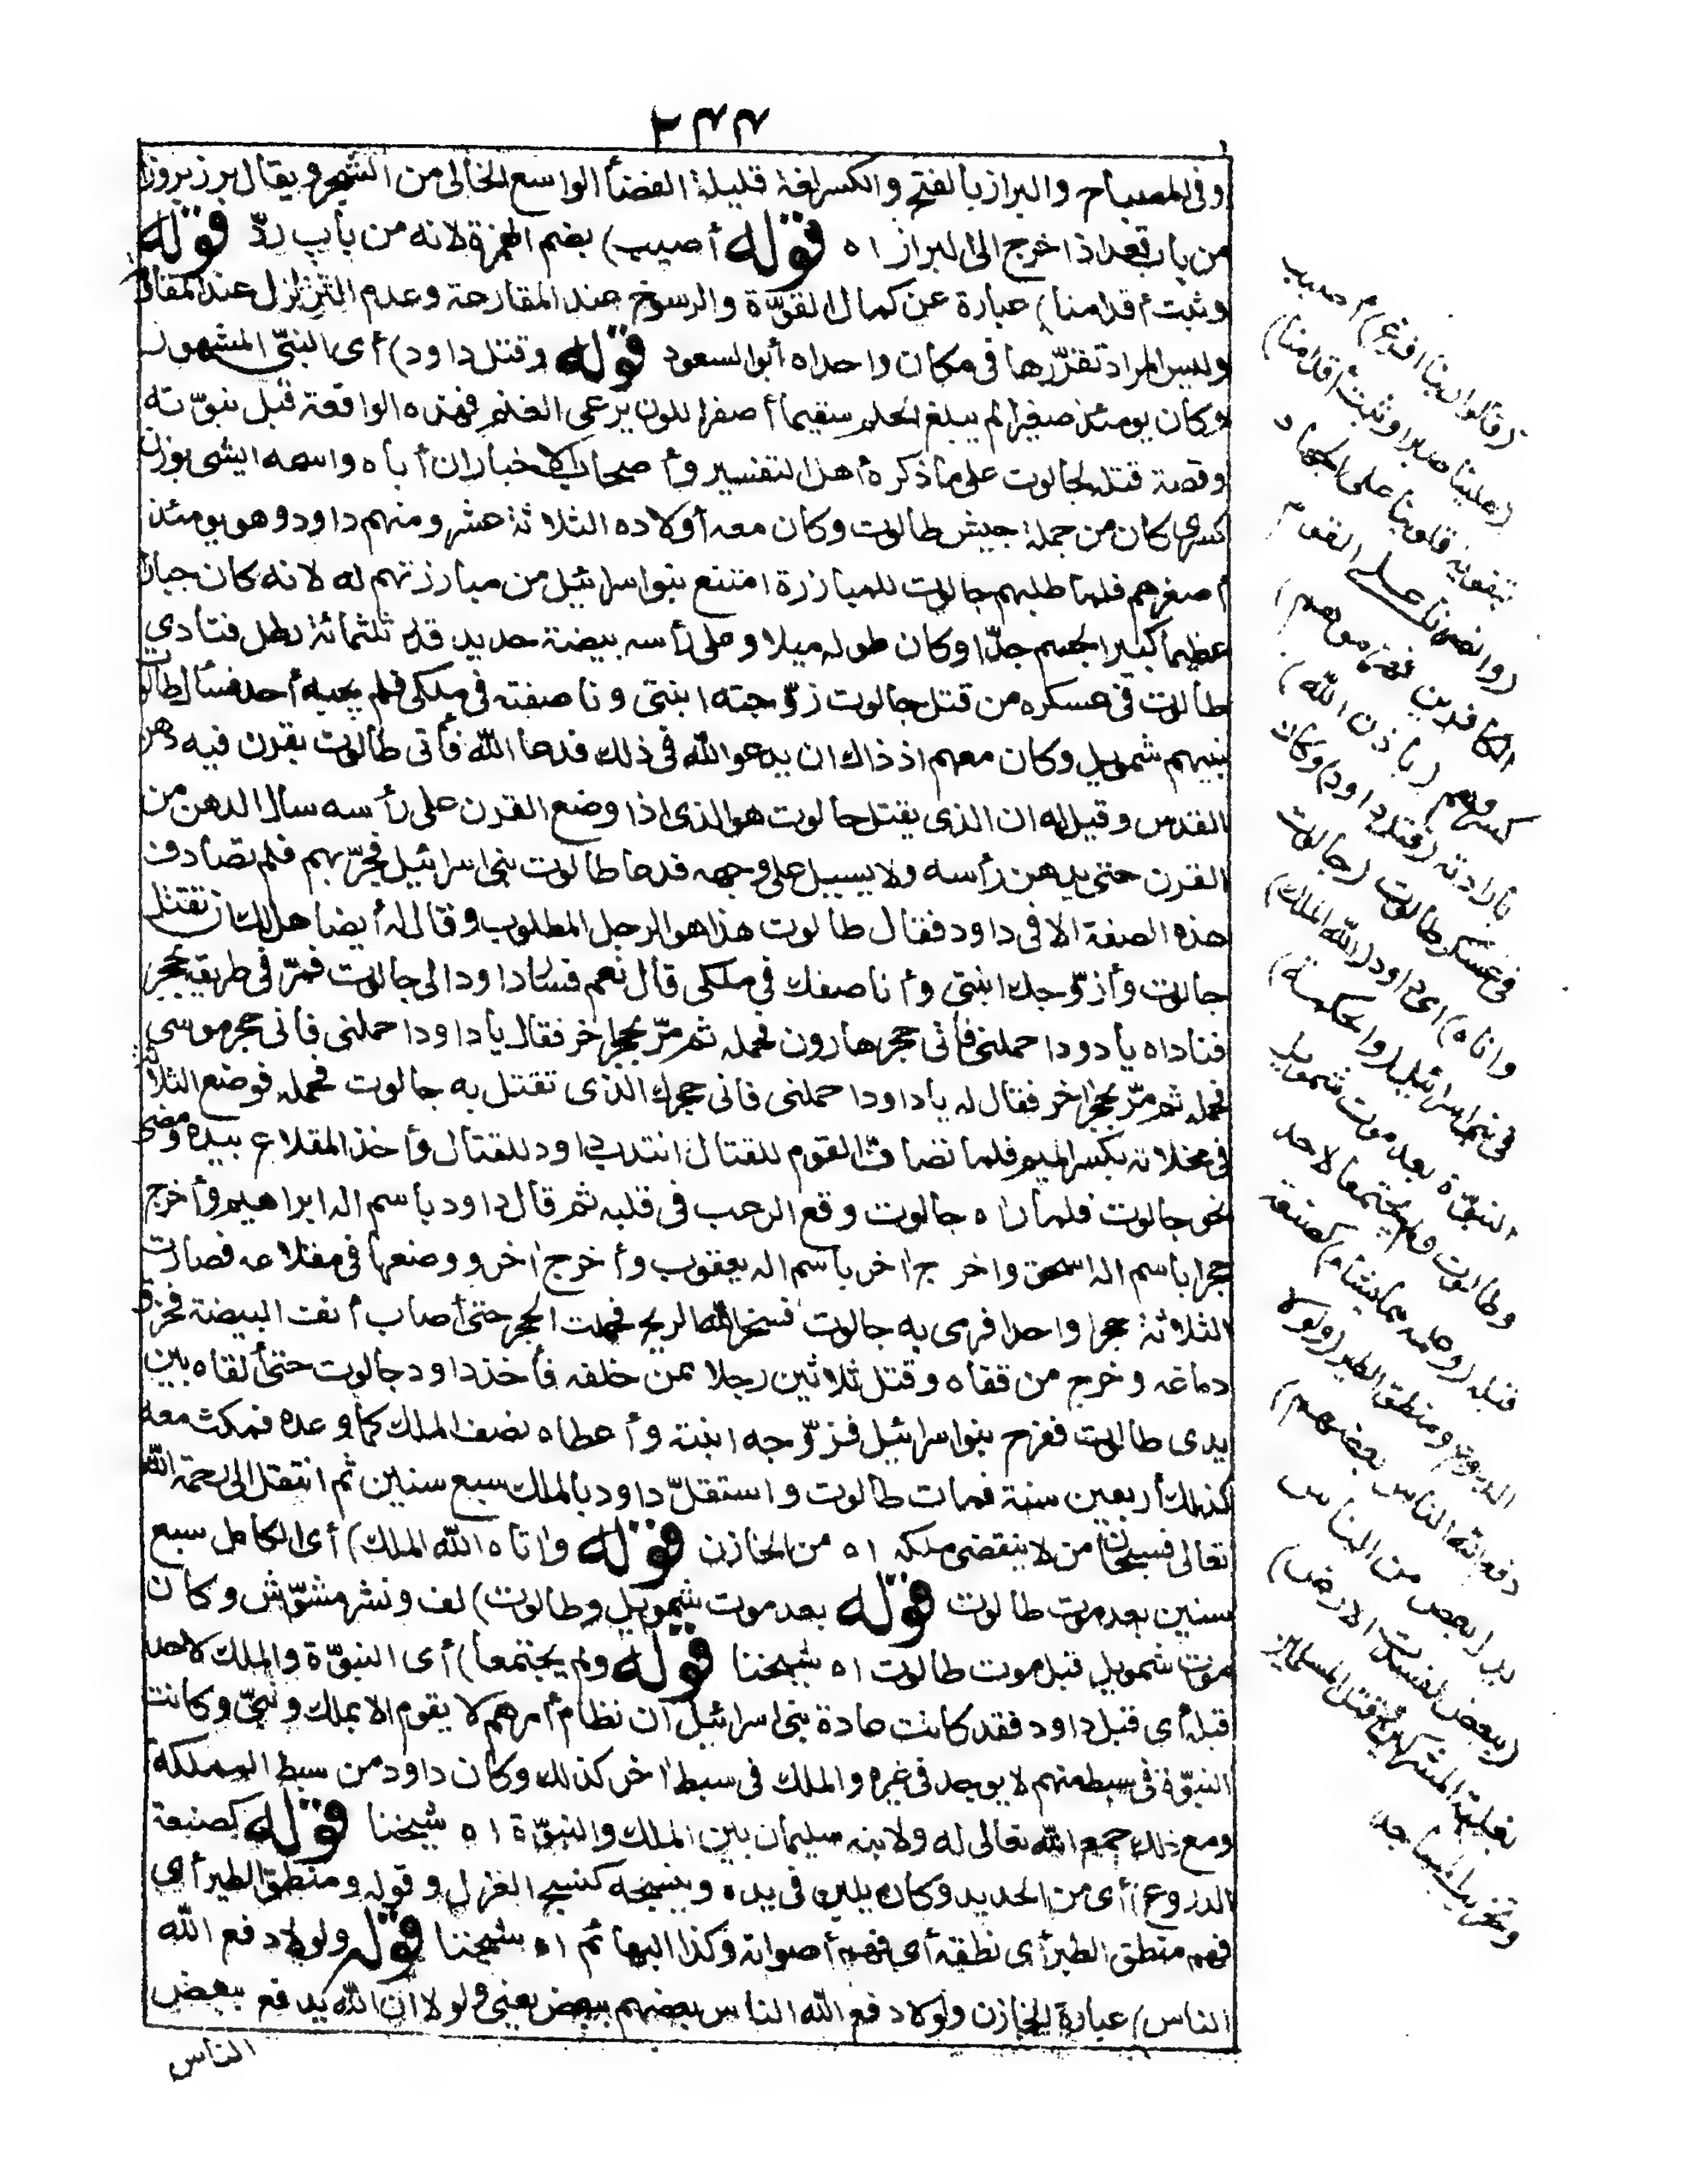 ٢٤٤
وفي المصباح والبراز بالفتح والكسر لغة قليلة الفضأ الواسع الخالى من الشجر ويقال برز بروزا
من باب قعد اذا خرج الى البراز اه قوله أصبب) بضم الهمزة لانه من باب ردّ قوله
وثبت أقدامنا) عبارة عن كمال القوّة والرسوخ عند المقارعة وعدم التزلزل عند المقاومة
وليس المراد تقرّرها فى مكان واحد اه أبو السعود قوله وقتل داود) أى النبىّ المشهور
وكان يومئذ صغيرا لم يبلغ الحلم سقيما أصفر اللون يرعى الغنم فهذه الواقعة قبل نبوّته
وقصة قتله لجالوت على ما ذكره أهل التفسير وأصحاب الاخبار ان أباه واسمه ايشى بوزن
كسرى كان من جملة جيش طالوت وكان معه أولاده الثلاثة عشر ومنهم داود وهو يومئذ
أصغرهم فلما طلبهم جالوت للمبارزة امتنع بنوا سرائيل من مبارزتهم له لانه كان جبارا
عظيما كبير الجسم جدّا وكان طوله ميلا وعلى رأسه بيضة حديد قدر ثلثمائة رطل فنادى
طالوت فى عسكره من قتل جالوت زوّجته ابنتى وناصفته فى ملكى فلم يجبه أحد فسأل طالوت
نبيهم شمويل وكان معهم اذ ذاك ان يدعو الله فى ذلك فدعا الله فأتى طالوت بقرن فيه دهن
القدس وقيل له ان الذى يقتل جالوت هو الذى اذا وضع القرن على رأسه سال الدهن من
القرن حتى يدهن رأسه ولا يسيل على وجهه فدعا طالوت بنى اسرائيل فجرّبهم فلم تصادف
هذه الصفة الا فى داود فقال طالوت هذا هو الرجل المطلوب وقال له أيضا هل لك ان تقتل
جالوت وأزوّجك ابنتى وأناصفك فى ملكى قال نعم فسار داود الى جالوت فمرّ فى طريقه بحجر
فناداه يا دود احملنى فأنى حجر هارون فحمله ثم مرّ بحجر اخر فقال يا داود احملنى فانى حجر موسى
فحمله ثم مرّ بحجر اخر فقال له يا داود احملنى فانى حجرك الذى تقتل به جالوت فحمله فوضع الثلاثة
فى مخلاته بكسر الميم فلما تصافّ القوم للقتال انتدب داود للقتال وأخذ المقلاع بيده ومضى
نحو جالوت فلما راه جالوت وقع الرعب فى قلبه ثم قال داود باسم اله ابراهيم وأخرج
حجرا باسم اله اسحق واخرج اخر باسم اله يعقوب وأخرج اخر ووضعها فى مقلاعه فصارت
الثلاثة حجرا واحدا فرمى به جالوت فسخر الله الريح فحملت الحجر حتى أصاب أنف البيضة فخرق
دماغه وخرج من قفاه وقتل ثلاثين رجلا ممن خلفه فأخذ داود جالوت حتى ألقاه بين
يدى طالوت ففرح بنوا سرائيل فزوّجه ابنته وأعطاه نصف الملك كما وعده فمكث معه
كذلك أربعين سنة فمات طالوت واستقلّ داود بالملك سبع سنين ثم انتقل الى رحمة الله
تعالى فسبحان من لا ينقضى ملكه اه من الخازن قوله واتاه الله الملك) أى الكامل سبع
سنين بعد موت طالوت قوله بعد موت شمويل وطالوت) لف ونشر مشوّش وكان
موت شمويل قبل موت طالوت اه شيخنا قوله ولم يجتمعا) أى النبوّة والملك لاحد
قبله أى قبل داود فقد كانت عادة بنى اسرائيل ان نظام أمرهم لا يقوم الا بملك ونبىّ وكانت
النبوّة فى سبط منهم لا يوجد فى غيره والملك فى سبط اخر كذلك وكان داود من سبط المملكة
ومع ذلك جمع الله تعالى له ولابنه سليمان بين الملك والنبوّة اه شيخنا قوله كصنعة
الدروع) أى من الحديد وكان يلين فى يده وينسجه كنسج الغزل وقوله ومنطق الطير أى
فهم منطق الطير أى نطقه أى فهم أصواته وكذا البهائم اه شيخنا قوله ولولا دفع الله
الناس) عبارة الخازن ولولا دفع الله الناس بعضهم ببعض يعنى ولولا ان الله يدفع ببعض
الناس
(قالوا ربنا افرغ) أصبب
(علينا صبرا وثبت أقدامنا)
بتقوية قلوبنا على الجهاد
(وانصرنا على القوم
الكافرين فهزموهم)
كسروهم (باذن الله)
بارادته (وقتل داود) وكان
فى عسكر طالوت (جالوت
واتاه) اى داود (الله الملك)
فى بنى اسرائيل (والحكمة)
النبوّة بعد موت شمويل
وطالوت ولم يجتمعا لاحد
قبله (وعلمه مما يشاء) كصنعة
الدروع ومنطق الطير (ولولا
دفع الله الناس بعضهم)
بدل بعض من الناس
(ببعض لفسدت الارض)
بغلبة المشركين وقتل المسلمين
وتخريب المساجد